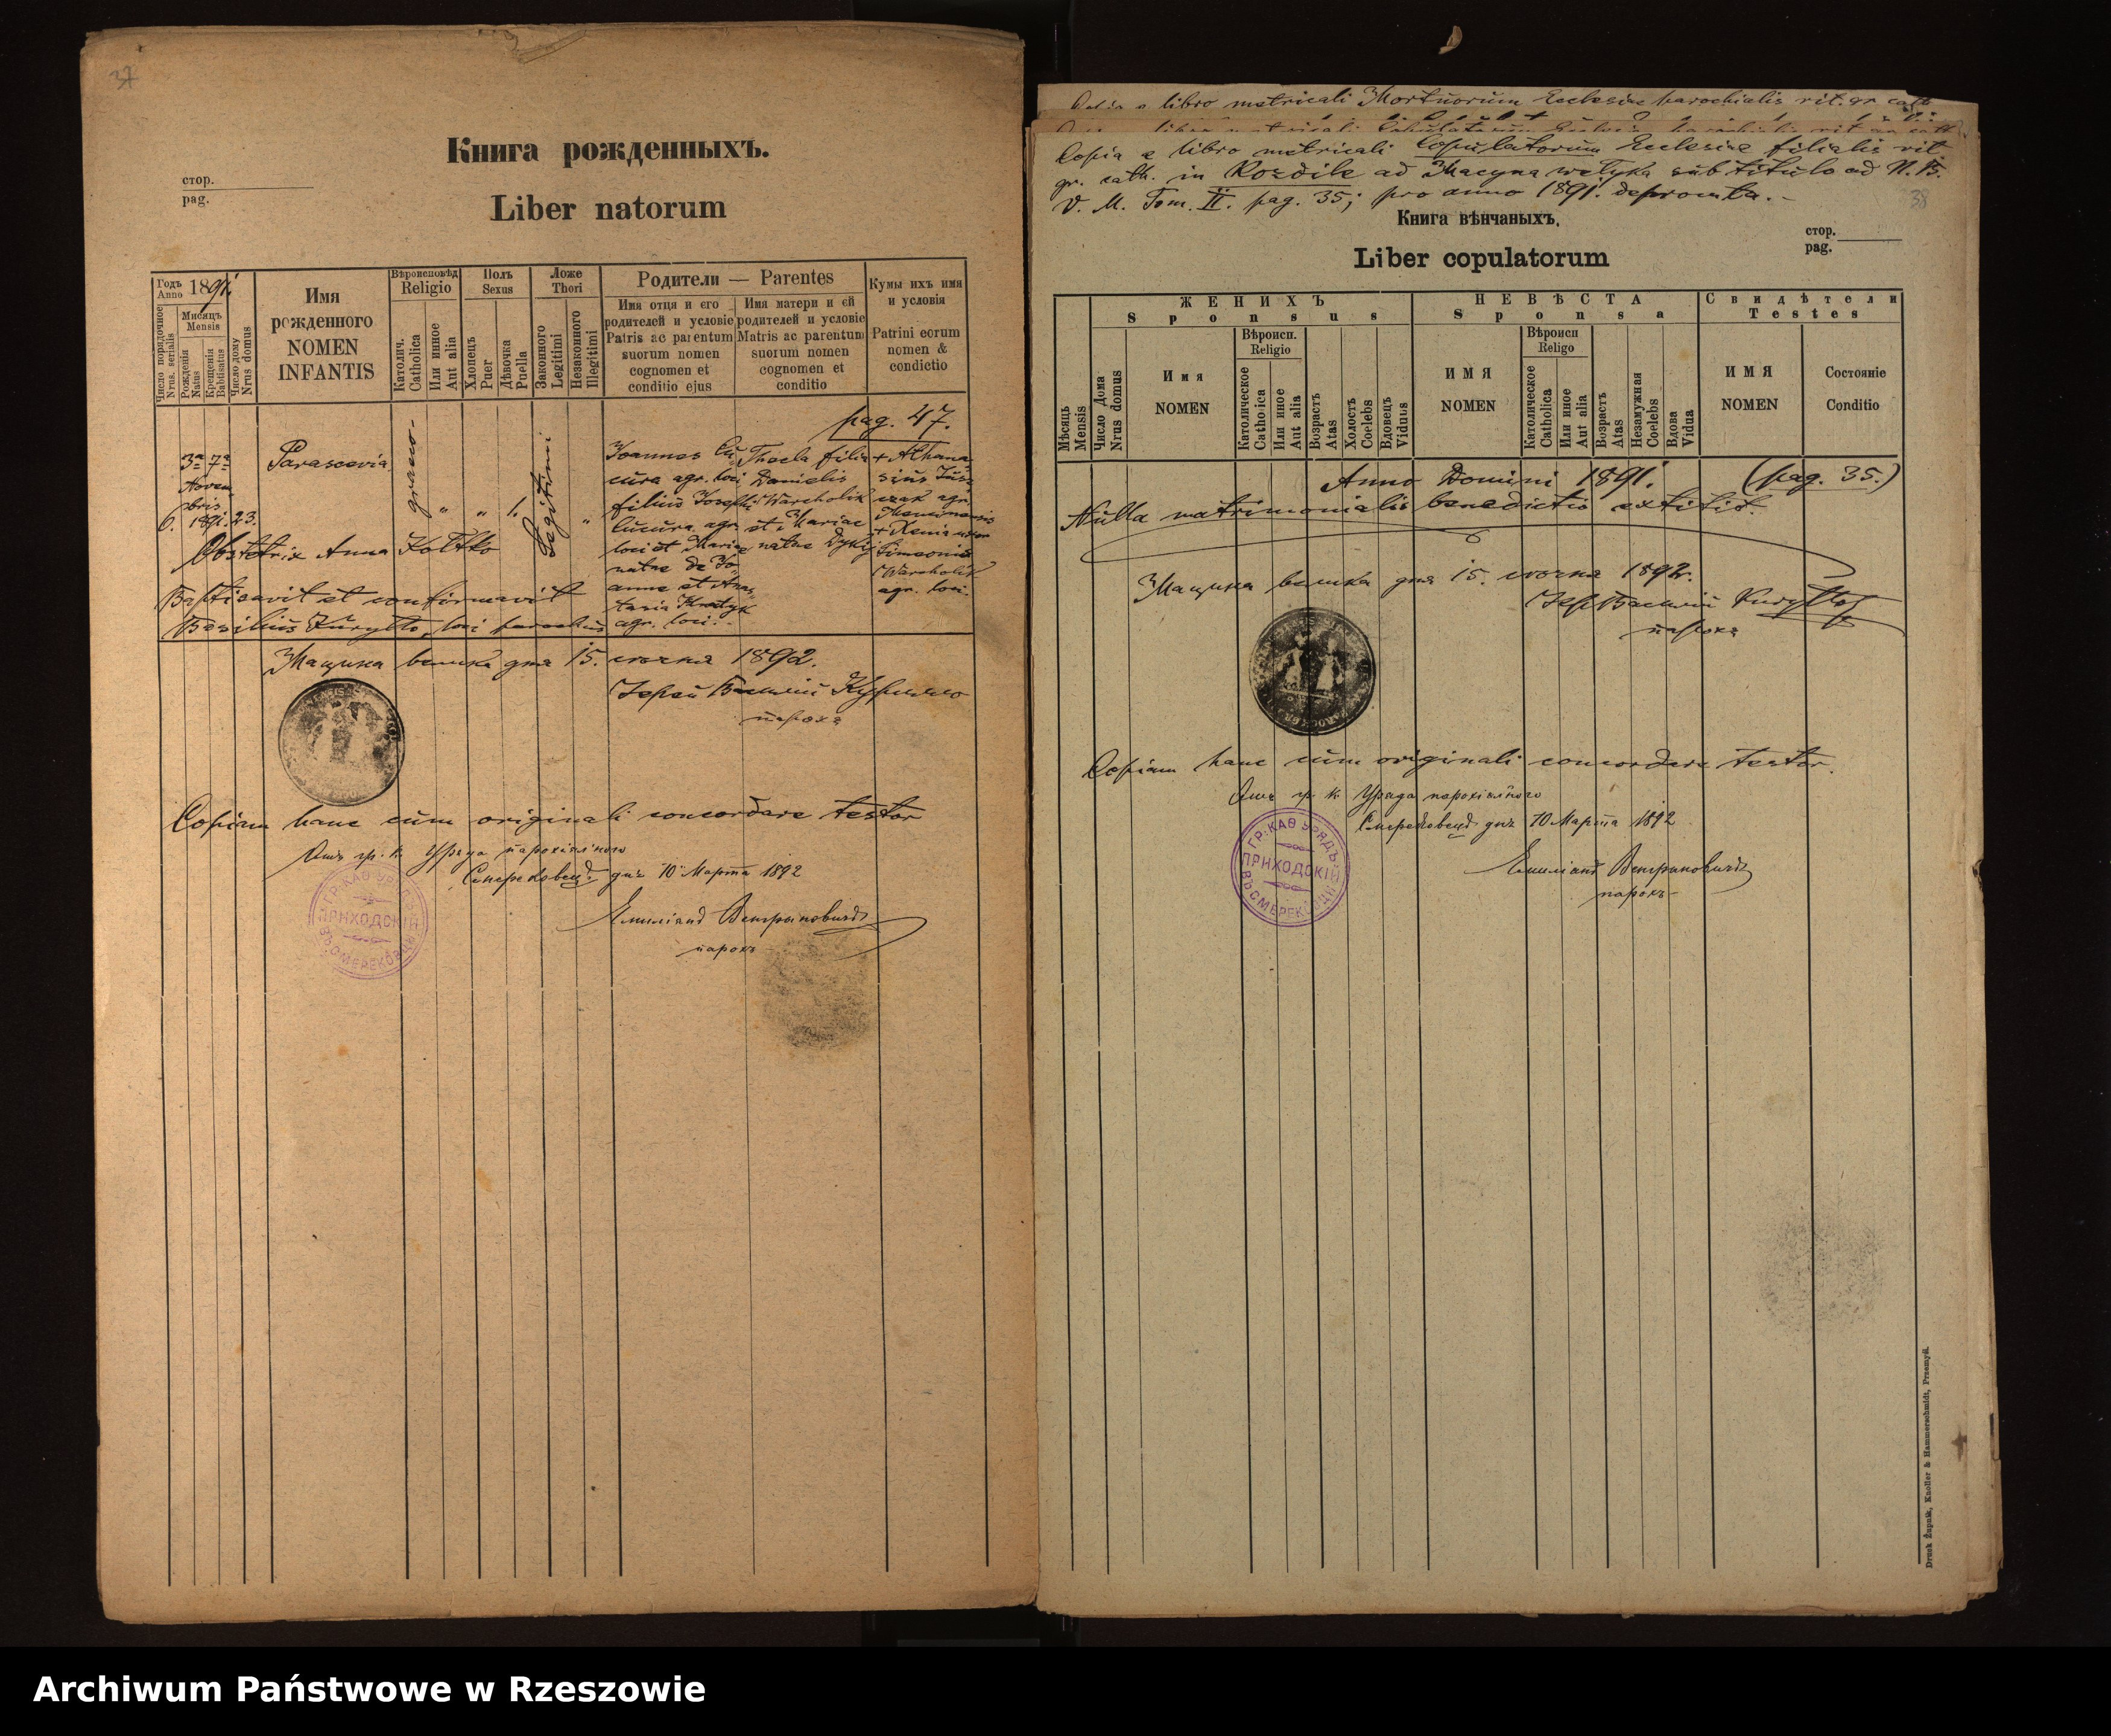 37
Книга рожденныхъ.
стор.
pag.
Liber natorum
Годъ
Anno 1891.
Число порядочное
Nrus. serialis
Мисяцъ
Mensis
Рожденія
Natus
Крещенія
Babtisatus
Число дому
Nrus domus
Имя
рожденного
NOMEN
INFANTIS
Вѣроисповѣд
Religio
Католич.
Catholica
Или инное
Aut alia
Полъ
Sexus
Хлопецъ
Puer
Дѣвочка
Puella
Ложе
Thori
Законного
Legitimi
Незаконного
Illegitimi
Родители — Parentes
Имя отця и єго
родителей и условіе
Patris ac parentum
suorum nomen
cognomen et
conditio ejus
Имя матери и єй
родителей и условіе
Matris ac parentum
suorum nomen
cognomen et
conditio
Кумы ихъ имя
и условія
Patrini eorum
nomen &
condictio
pag. 47.
6. 3a 7a
Novem
bris
1891. 23.
Parascevia
graeco-
" " 1.
Legitimi
"
Joannes Cu
cura agr. loci
filius Josephi
Cucura agr.
loci et Mariae
natae de Jo-
anne et Anas-
tasia Kratyk
agr. loci.-
Thecla filia
Danielis
Warcholik
et Mariae
natae Dykyj
+ Athana
sius Jus-
czak agr.
+ Xenia uxor
Simeonis
Warcholik
agr. loci.
Obstetrix Anna Koltko
Baptisavit et confirmavit
Basilius Kuryłło, loci parochus
Мацина велика дня 15. 1892.
Іерей Василій Курилло
парохъ
Copiam hanc cum originali concordare testor
Отъ гр. к. Уряда парохіяльного
дня 10 Марта 1892
ГР. КАѲ УРЯДЪ
ПРИХОДСКІЙ
ВЪ СМЕРЕКОВЦИ
Емиліанъ Венгриновичъ
парохъ
Copia e libro metricali Mortuorum Ecclesiae parochialis rit. gr. cath
Copia e libro metricali Copulatorum Ecclesiae filialis rit
gr. cath. in Rozdile ad Macyna wełyka sub titulo ad N. B.
V. M. Tom. II. pag. 35; pro anno 1891. deprompta.-
38
Книга вѣнчаныхъ.
стор.
pag.
Liber copulatorum
Мѣсяць
Mensis
Число Дома
Nrus domus
ЖЕНИХЪ
Sponsus
Имя
NOMEN
Вѣроисп.
Religio
Католическое
Catholica
Или иное
Aut alia
Возрастъ
Atas
Холостъ
Coelebs
Вдовець
Viduus
НЕВѢСТА
Sponsa
ИМЯ
NOMEN
Вѣроисп
Religo
Католическое
Catholica
Или иное
Aut alia
Возрастъ
Atas
Незамужная
Coelebs
Вдова
Vidua
Свидѣтели
Testes
ИМЯ
NOMEN
Состояніе
Conditio
Anno Domini 1891. (pag. 35.)
Nulla matrimonialis benedictio extitit.
Мацина велика дня 15. 1892.
Іерей Василій Kuryłło
парохъ
Copiam hanc cum originali concordare testor.
Отъ гр. к. Уряда парохіяльного
дня 10 Марта 1892
ГР. КАѲ УРЯДЪ
ПРИХОДСКІЙ
ВЪ СМЕРЕКОВЦИ
Емиліанъ Венгриновичъ
парохъ
Druck Żupnik, Knoller & Hammerschmidt, Przemyśl.
Archiwum Państwowe w Rzeszowie